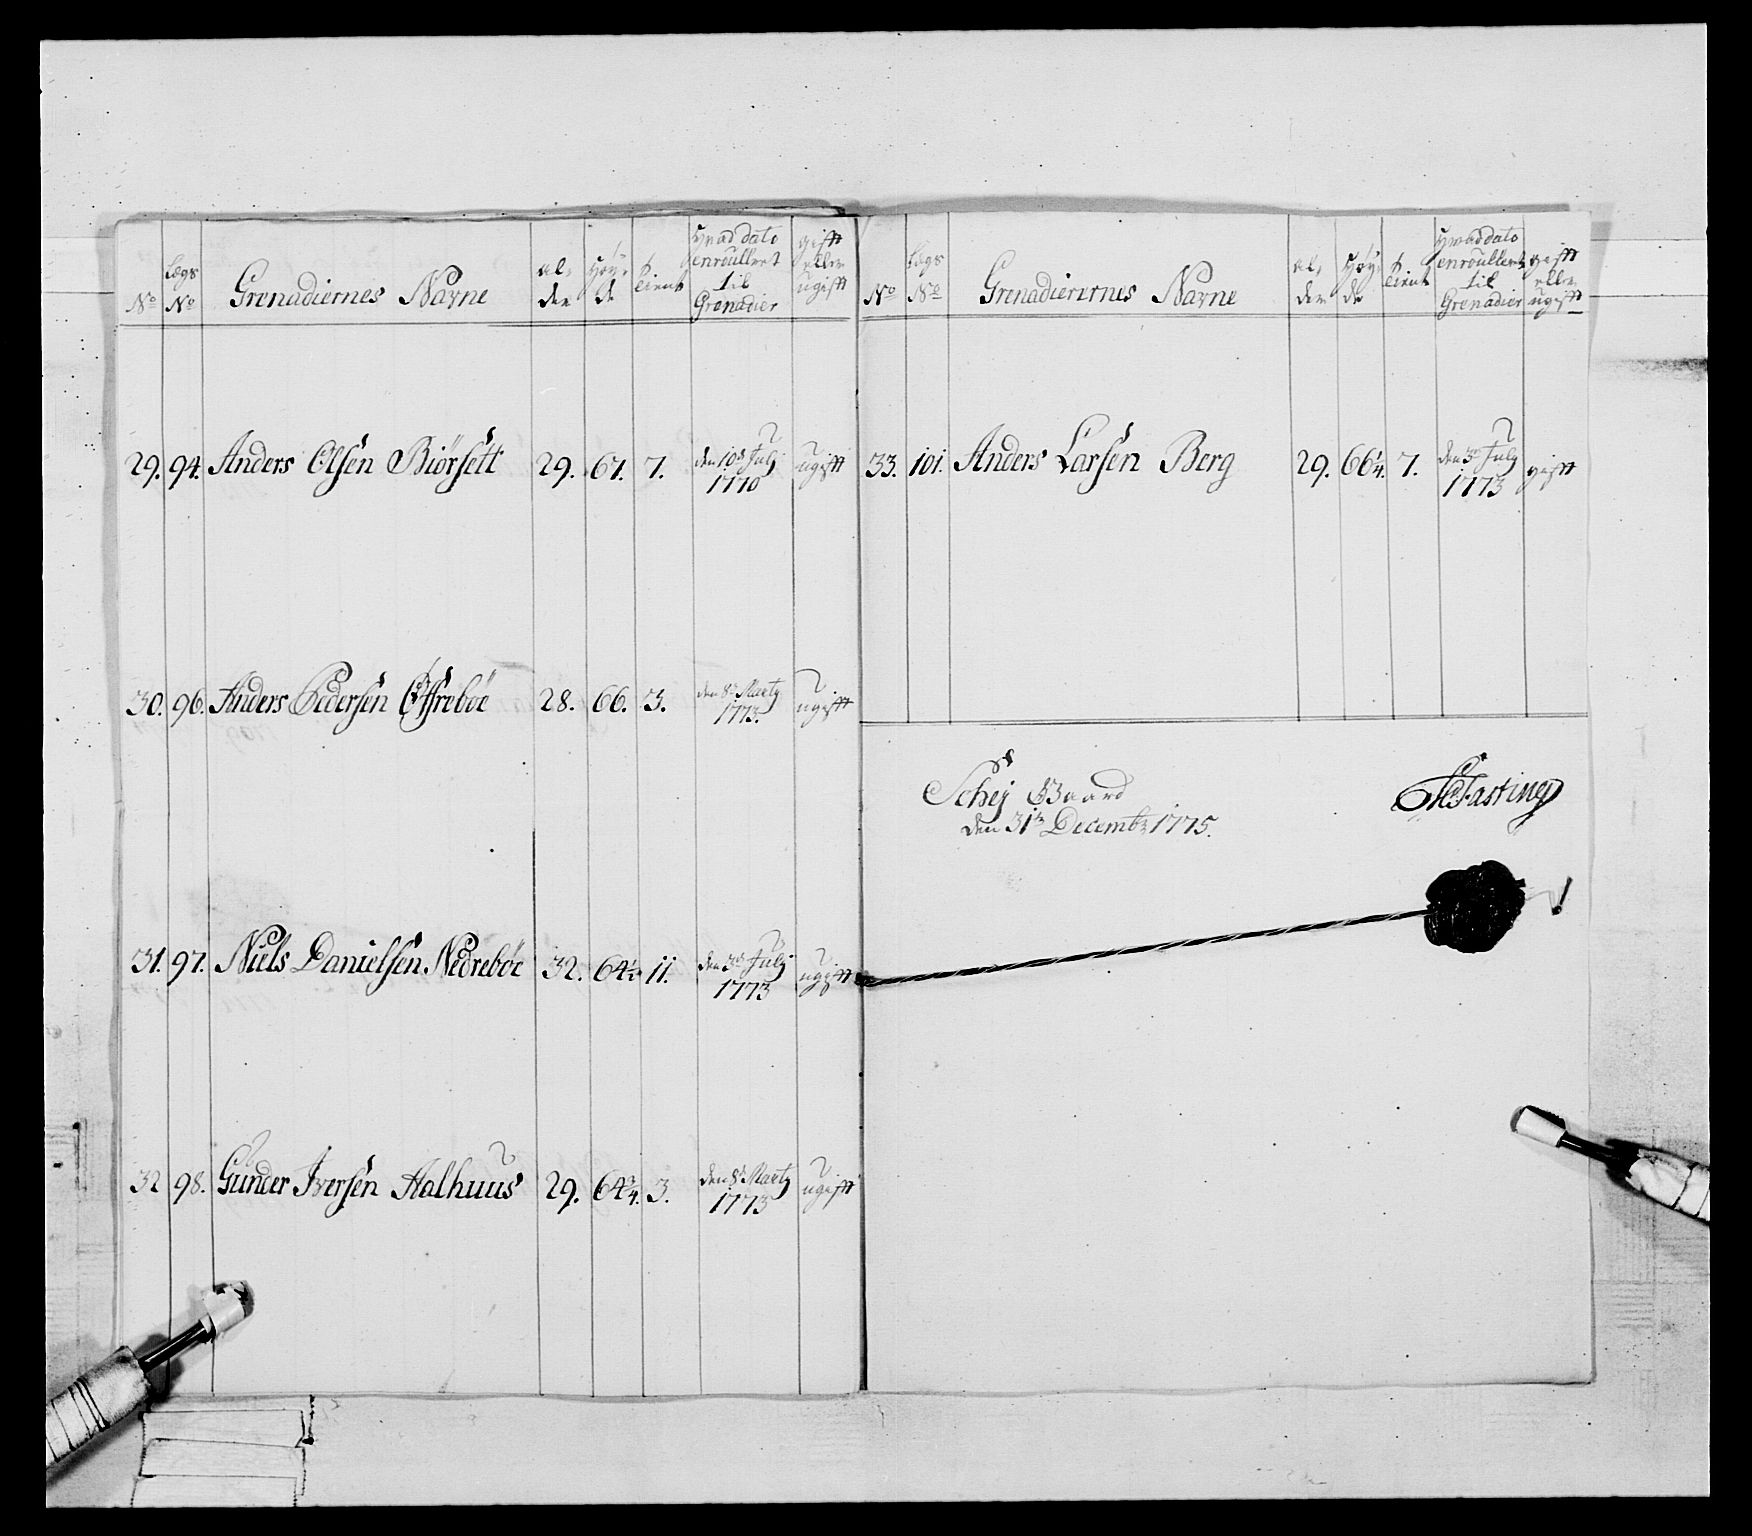 No
Lægs No
Grenadiernes Navne
al,, der
Høy,, de
t,, tient
Hvad dato enroullert til Grenadier
gifft eller ugifft
29. 94. Anders Olsen Biørsett 29. 67. 7. den 10de July 1770 ugifft
30. 96. Anders Pedersen Øffrebøe 28. 66. 3. den 8de Marty 1773. ugifft
31. 97. Niels Danielsen Nedrebøe 32. 64½ 11. den 3de July 1773 ugifft
32 98. Gunder Iversen Aalhuus 29. 64¾. 3. den 8de Marty 1773 ugifft
No
Lægs No
Grenadierernes Navne
al,, der
Høy,, de
t,, tient
Hvad dato enroullert til Grenadier
gifft eller ugifft
33. 101. Anders Larsen Berg 29. 66¼. 7. den 3de July 1773 gifft
Schej Gaard
den 31te Decembr 1775.
Fasting